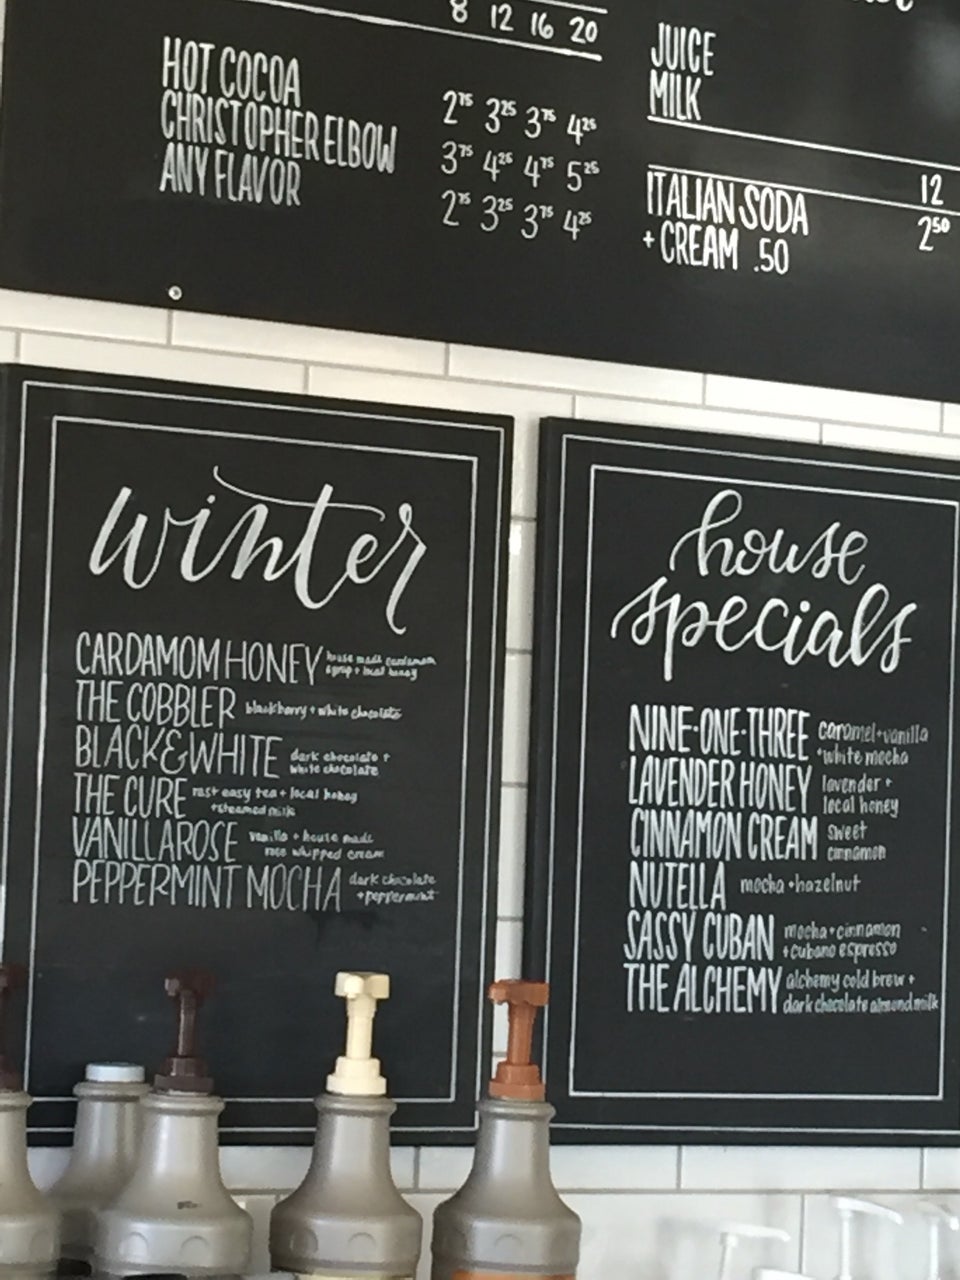 8 12 16 20
HOT COCOA 2.75 3.25 3.75 4.25
CHRISTOPHER ELBOW 3.75 4.25 4.75 5.25
ANY FLAVOR 2.75 3.25 3.75 4.25
JUICE
MILK
12
ITALIAN SODA 2.50
+ CREAM .50
winter
CARDAMOM HONEY house made cardamom
syrup + local honey
THE COBBLER blackberry + white chocolate
BLACK&WHITE dark chocolate +
white chocolate
THE CURE rast easy tea + local honey
+steamed milk
VANILLAROSE vanilla + house made
rose whipped cream
PEPPERMINT MOCHA dark chocolate
+ peppermint
house
specials
NINE·ONE·THREE caramel+vanilla
+white mocha
LAVENDER HONEY lavender +
local honey
CINNAMON CREAM sweet
cinnamon
NUTELLA mocha + hazelnut
SASSY CUBAN mocha + cinnamon
+ cubano espresso
THE ALCHEMY alchemy cold brew +
dark chocolate almond milk